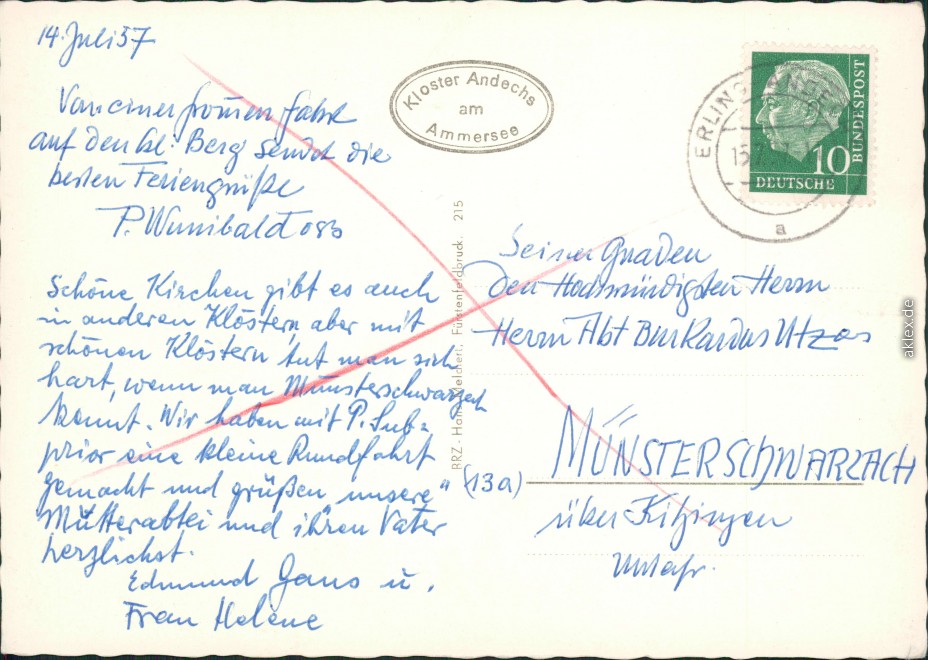 14. Juli 57
Von einer frommen Fahrt
auf den hl. Berg sendet die
besten Feriengrüße
P. Wunibald OSB
Schöne Kirchen gibt es auch
in anderen Klöstern, aber mit
schönen Klöstern tut man sich
hart, wenn man Münsterschwarzach
kennt. Wir haben mit P. Sub=
prior eine kleine Rundfahrt
gemacht und grüßen unsere
Mutterabtei und ihren Vater
herzlichst.
Edmund Gans u.
Frau Helene
Kloster Andechs
am
Ammersee
RRZ - Hans Melcherl, Fürstenfeldbruck. 215
ERLING
15.7.
a
10
DEUTSCHE
BUNDESPOST
Seiner Gnaden
Den Hochwürdigsten Herrn
Herrn Abt Burkardus Utz OSB
(13a) MÜNSTERSCHWARZACH
über Kitzingen
Unterfr.
aklex.de